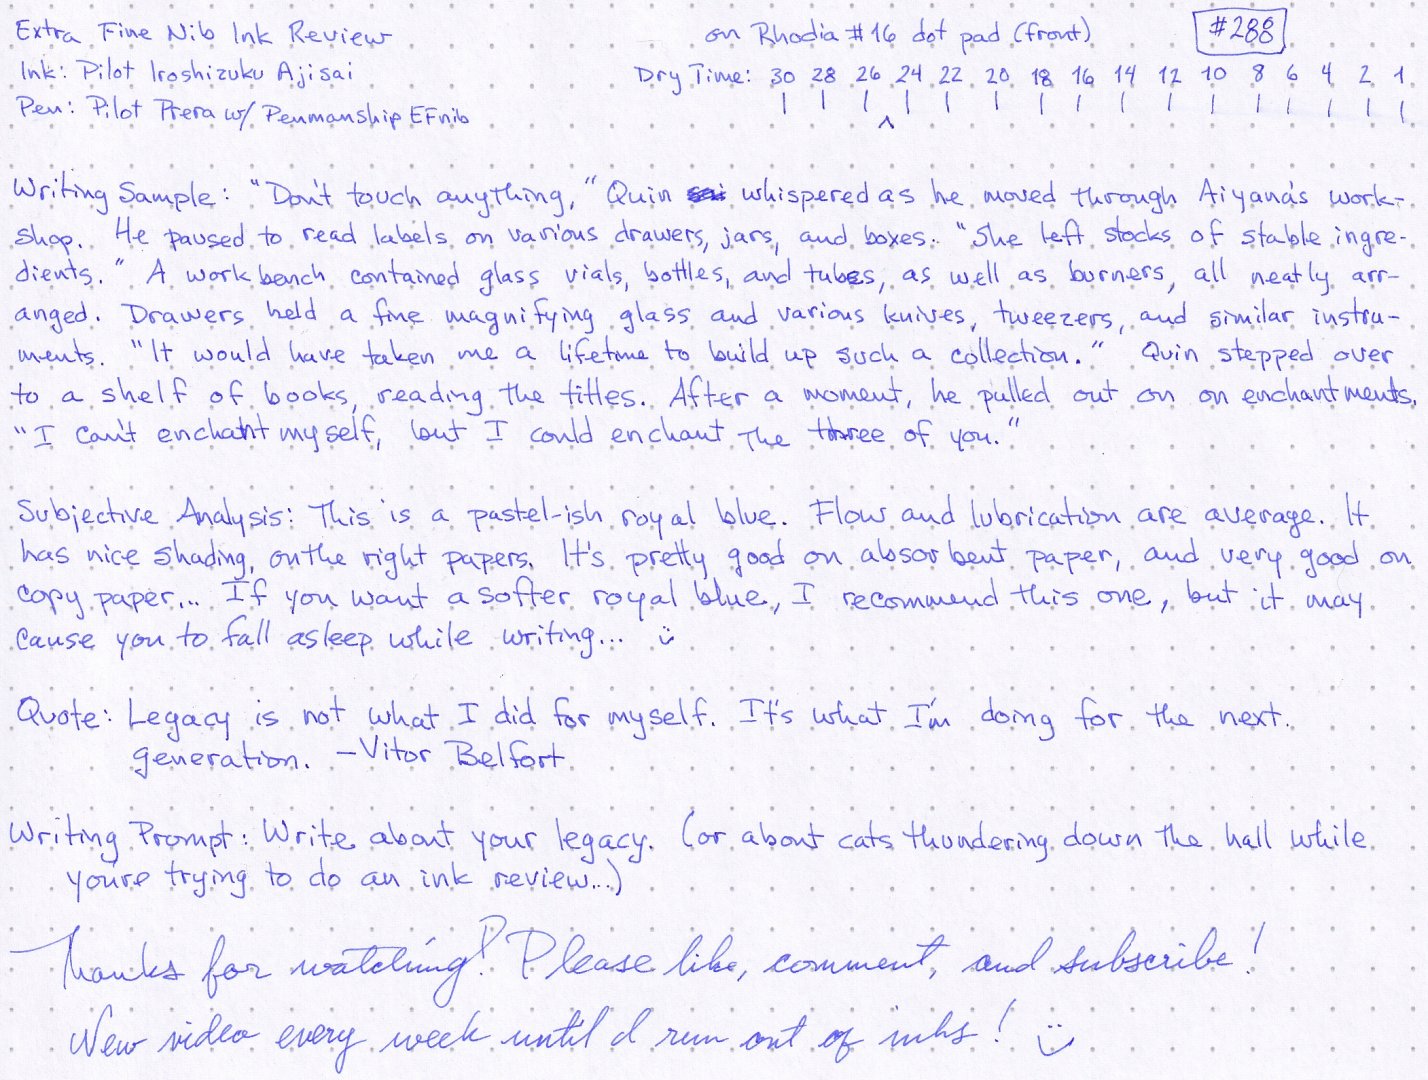 Extra Fine Nib Ink Review
on Rhodia #16 dot pad (front)
#288
Ink: Pilot Iroshizuku Ajisai
Dry Time: 30 28 26 24 22 20 18 16 14 12 10 8 6 4 2 1
Pen: Pilot Prera w/ Penmanship EF nib
Writing Sample: "Don't touch anything," Quin whispered as he moved through Aiyana's work-
shop. He paused to read labels on various drawers, jars, and boxes. "She left stocks of stable ingre-
dients." A work bench contained glass vials, bottles, and tubes, as well as burners, all neatly arr-
anged. Drawers held a fine magnifying glass and various knives, tweezers, and similar instru-
ments. "It would have taken me a lifetime to build up such a collection." Quin stepped over
to a shelf of books, reading the titles. After a moment, he pulled out on on enchantments.
"I can't enchant myself, but I could enchant the three of you."
Subjective Analysis: This is a pastel-ish royal blue. Flow and lubrication are average. It
has nice shading, on the right papers. It's pretty good on absorbent paper, and very good on
copy paper... If you want a softer royal blue, I recommend this one, but it may
cause you to fall asleep while writing... :)
Quote: Legacy is not what I did for myself. It's what I'm doing for the next
generation. -Vitor Belfort
Writing Prompt: Write about your legacy. (or about cats thundering down the hall while
you're trying to do an ink review...)
Thanks for watching! Please like, comment, and subscribe!
New video every week until I run out of inks! :)